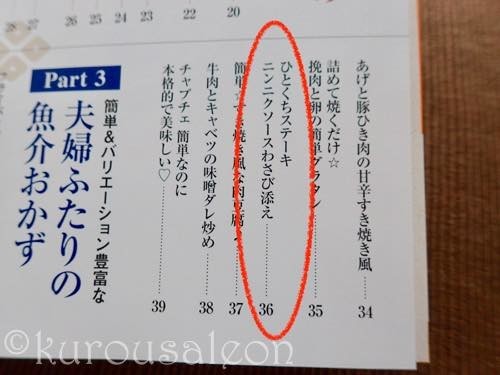 28
27
26
24
23
22
20
あげと豚ひき肉の甘辛すき焼き風……34
詰めて焼くだけ☆
挽肉と卵の簡単グラタン……35
ひとくちステーキ
ニンニクソースわさび添え……36
簡単すき焼き風な肉豆腐〜……37
牛肉とキャベツの味噌ダレ炒め……38
チャプチェ 簡単なのに
本格的で美味しい♡……39
Part 3
簡単&バリエーション豊富な
夫婦ふたりの
魚介おかず
©kurousaleon